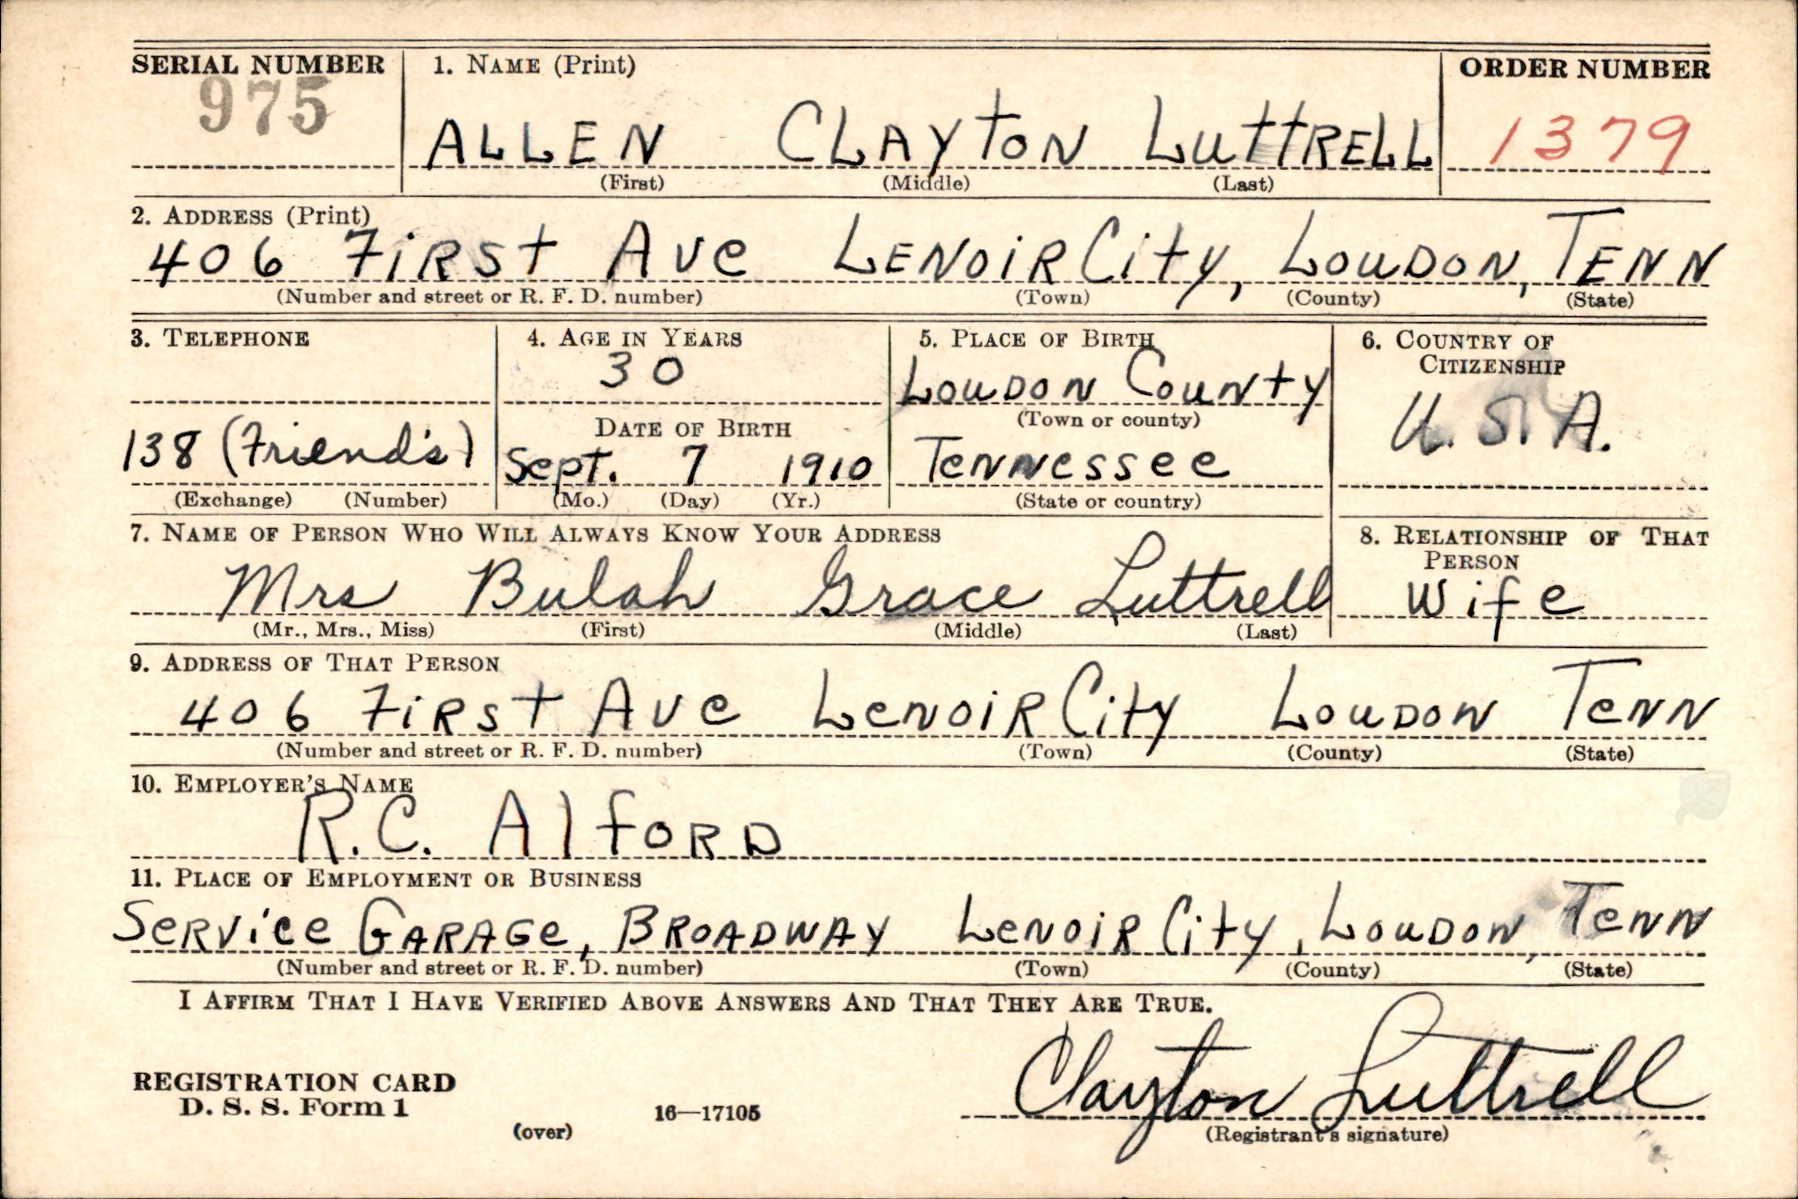 SERIAL NUMBER 1. NAME (Print) ORDER NUMBER
975 ALLEN CLAYTON LUTTRELL 1379
(First) (Middle) (Last)
2. ADDRESS (Print)
406 FIRST AVE LENOIR CITY, LOUDON, TENN
(Number and street or R. F. D. number) (Town) (County) (State)
3. TELEPHONE 4. AGE IN YEARS 5. PLACE OF BIRTH 6. COUNTRY OF
CITIZENSHIP
30 LOUDON COUNTY
(Town or county)
DATE OF BIRTH U.S.A.
138 (Friend's) Sept. 7 1910 Tennessee
(Exchange) (Number) (Mo.) (Day) (Yr.) (State or country)
7. NAME OF PERSON WHO WILL ALWAYS KNOW YOUR ADDRESS 8. RELATIONSHIP OF THAT
PERSON
Mrs Bulah Grace Luttrell Wife
(Mr., Mrs., Miss) (First) (Middle) (Last)
9. ADDRESS OF THAT PERSON
406 First Ave Lenoir City Loudon Tenn
(Number and street or R. F. D. number) (Town) (County) (State)
10. EMPLOYER'S NAME
R.C. Alford
11. PLACE OF EMPLOYMENT OR BUSINESS
Service Garage, Broadway Lenoir City, Loudon, Tenn
(Number and street or R. F. D. number) (Town) (County) (State)
I AFFIRM THAT I HAVE VERIFIED ABOVE ANSWERS AND THAT THEY ARE TRUE.
REGISTRATION CARD
D. S. S. Form 1 16—17105 Clayton Luttrell
(over) (Registrant's signature)